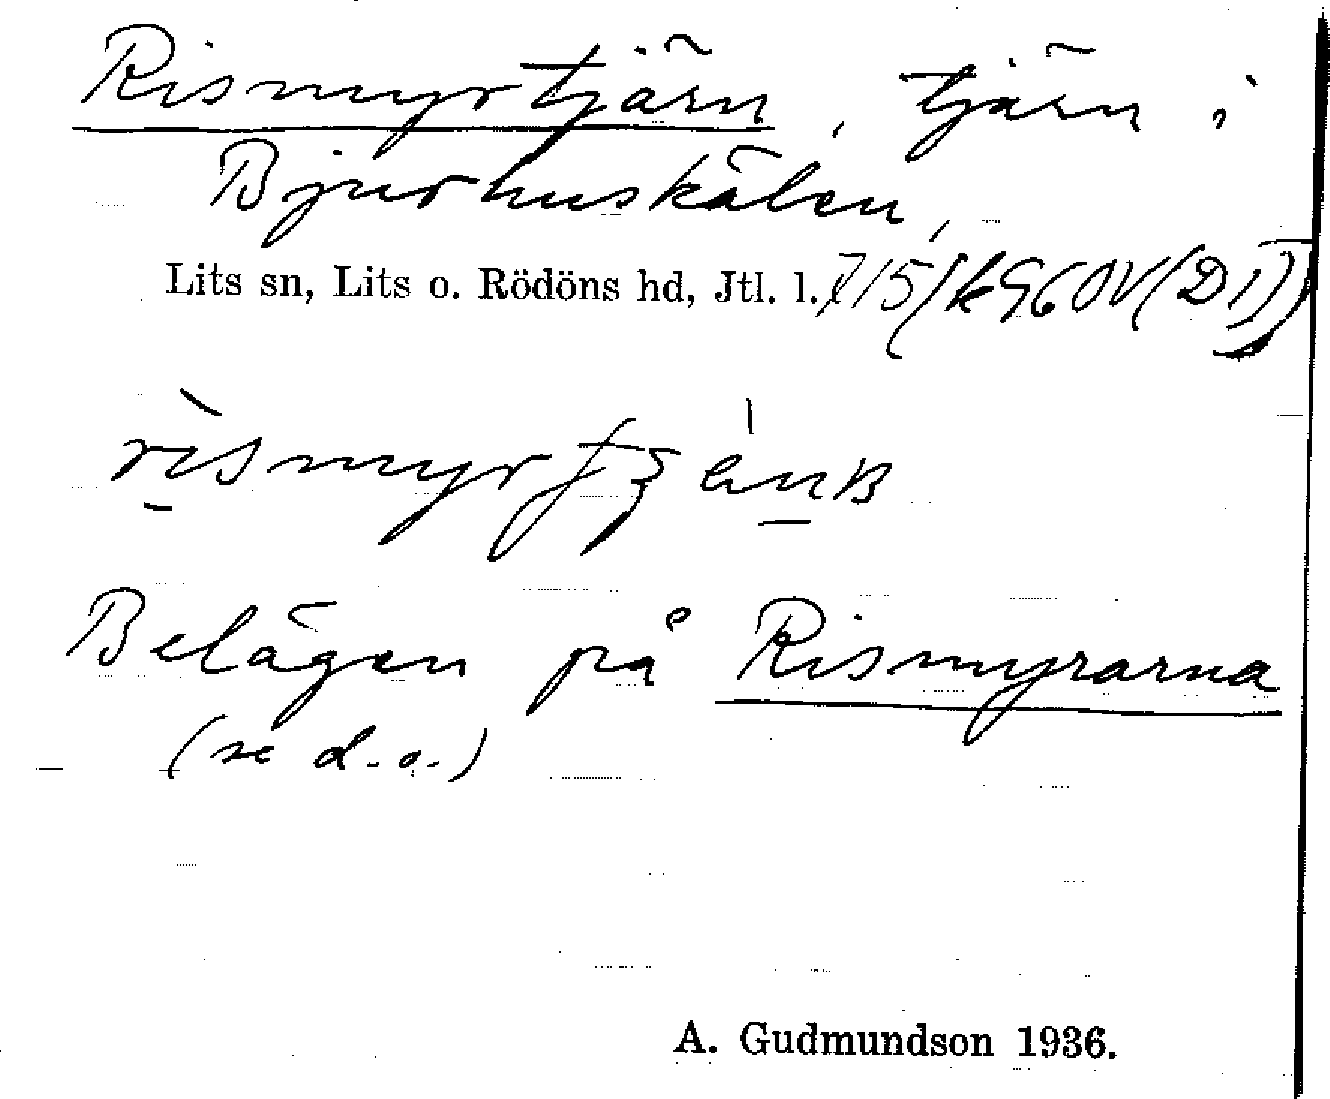 Rismyrtjärn, tjärn i
Bjurhuskälen,
Lits sn, Lits o. Rödöns hd, Jtl. l.
Belägen på Rismyrarna
(se d. o.)
A. Gudmundson 1936.